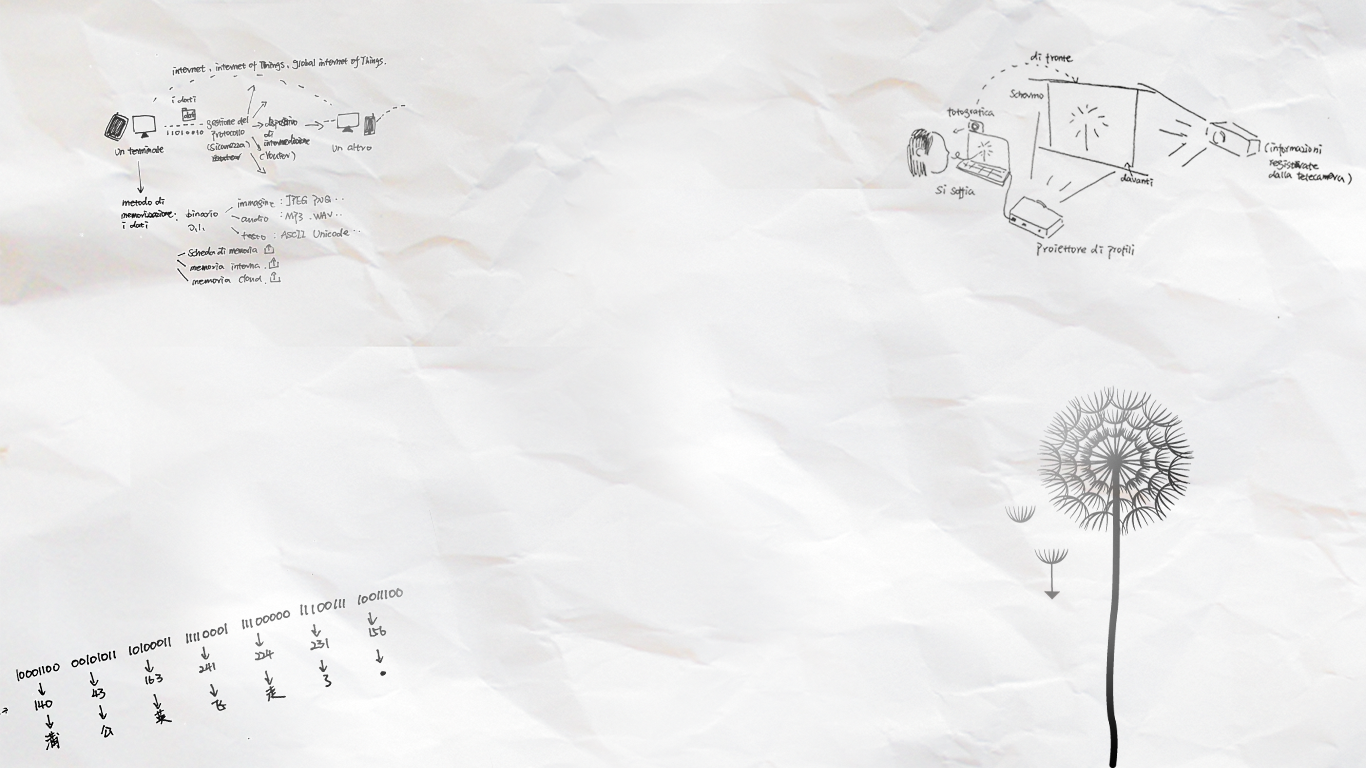 internet, internet of Things, global internet of Things.
i dati
dati
11010010
un terminale
gestione del
Protocollo
(Sicurezza)
dispositivo
di
intermediazione
(router)
un altro
metodo di
memorizzazione
i dati
binario
0,1.
immagine : JPEG PNG ..
audio : MP3 . WAV ..
testo : ASCII Unicode ..
Scheda di memoria
memoria interna.
memoria cloud.
di fronte
Schermo
fotografica
Si soffia
davanti
(informazioni
registrate
dalla telecamera)
Proiettore di profili
10001100 00101011 10100011 11110001 11100000 11100111 10011100
140 43 163 241 224 231 156
蒲 公 英 飞 走 了 。